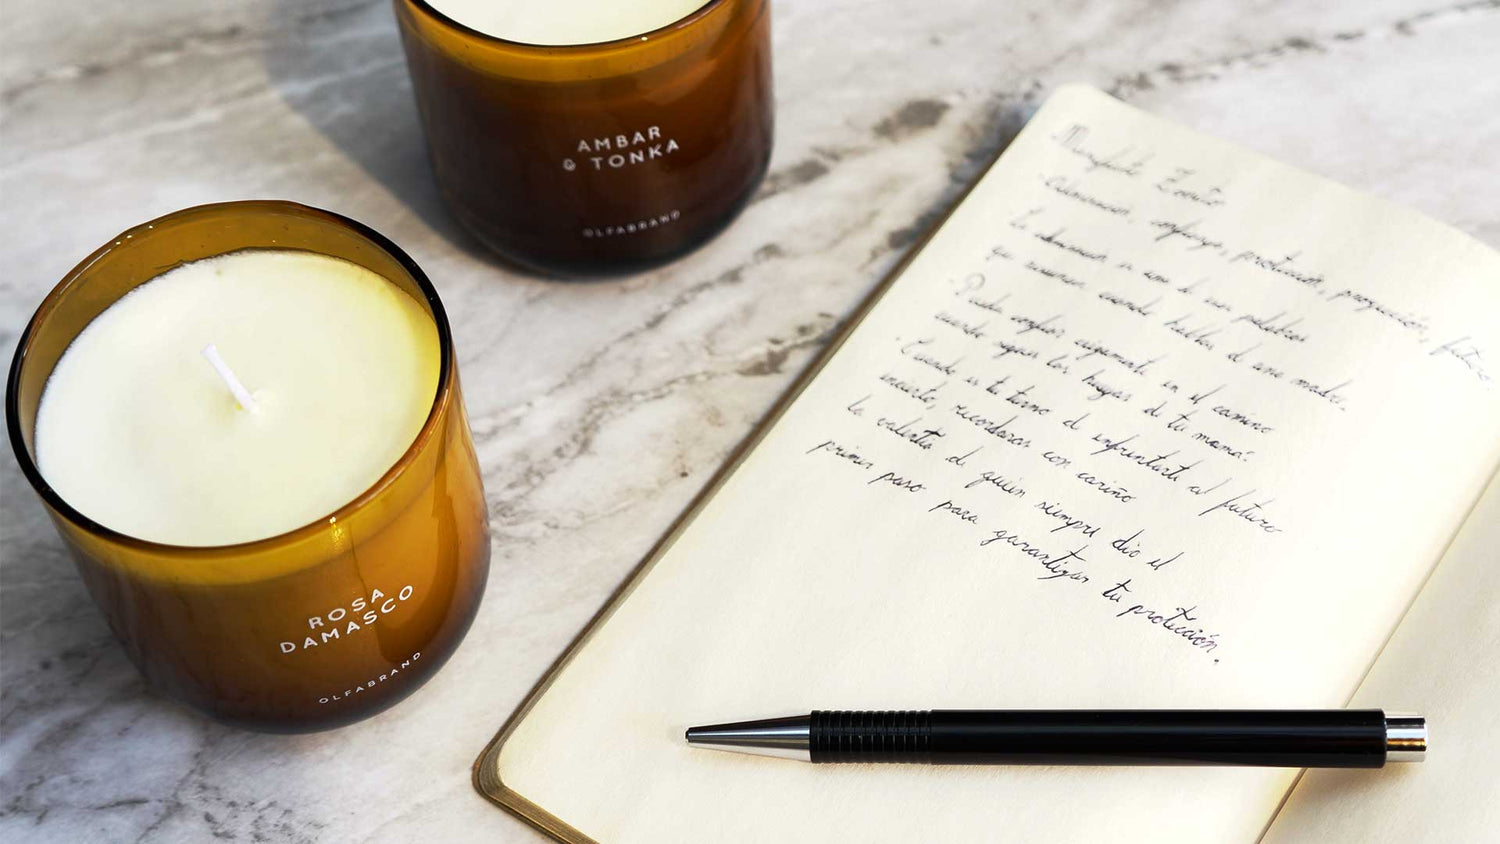 AMBAR
& TONKA
OLFABRAND
ROSA
DAMASCO
OLFABRAND
Manifiesto
Admiración, refugio, protección, proyección, futuro
La admiración es una de esas palabras
que resuenan cuando hablas de una madre.
Puedes confiar ciegamente en el camino
cuando sigues las huellas de tu mamá.
Cuando es tu turno de enfrentarte al futuro
incierto, recordaras con cariño
la valentía de quien siempre dio el
primer paso para garantizar tu protección.